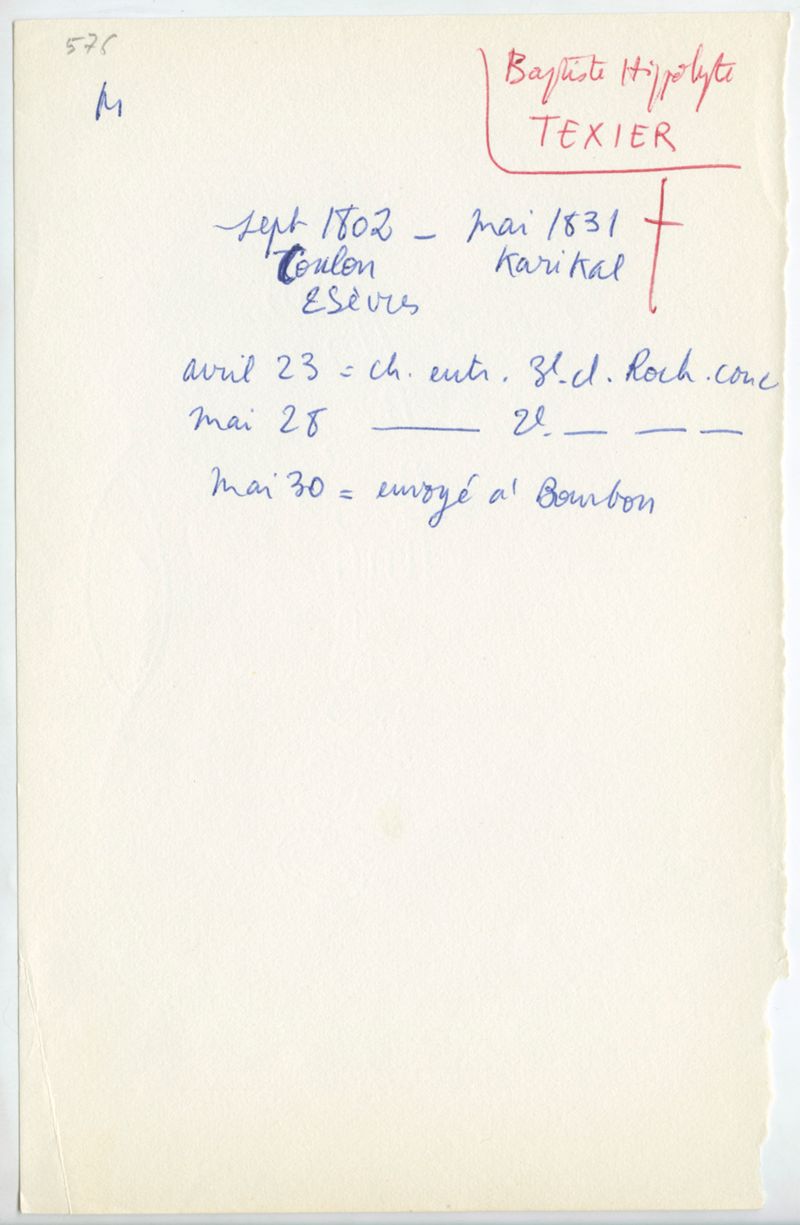 576
M
Baptiste Hippolyte
TEXIER
sept 1802 — mai 1831 †
Toulon Karikal
2 Sèvres
avril 23 = ch. entr. 3e cl. Roch. conc
mai 28 —— 2e — — —
mai 30 = envoyé à Bourbon